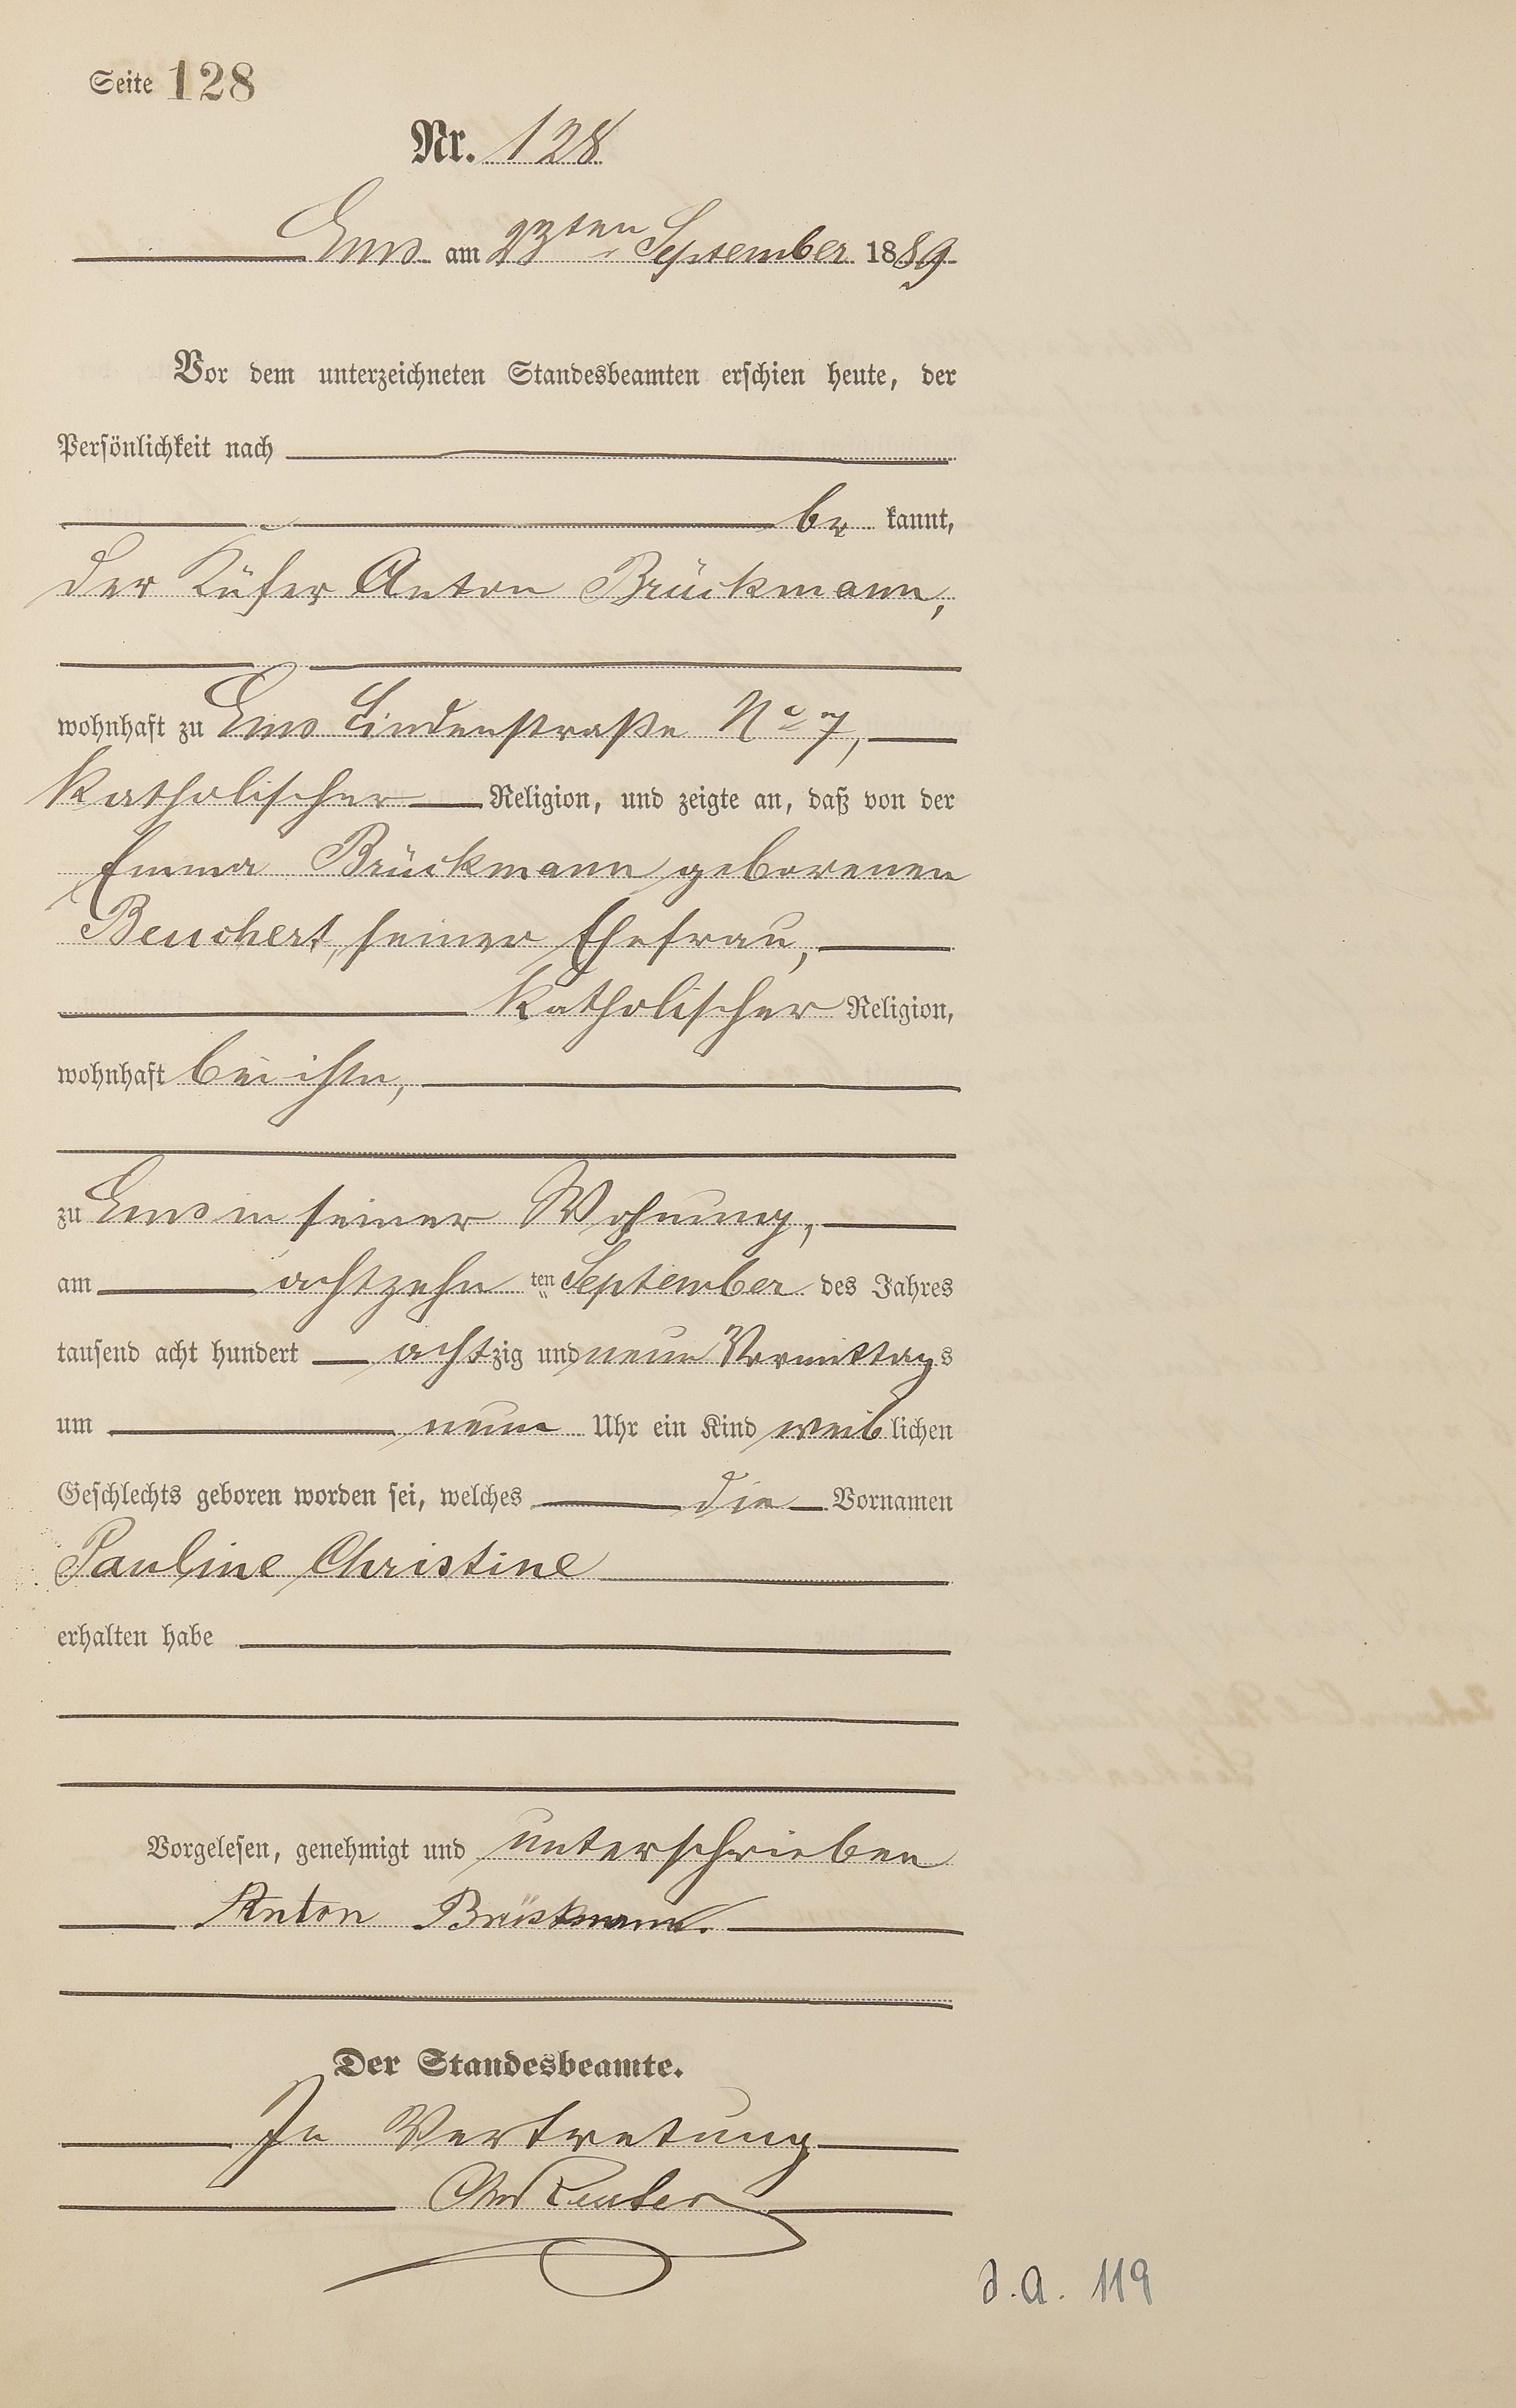 Seite 128
Nr. 128
Ems am 23ten September 1889
Vor dem unterzeichneten Standesbeamten erschien heute, der
Persönlichkeit nach
be kannt,
der Küfer Anton Brückmann,
wohnhaft zu Ems Lindenstraße No 7,
katholischer Religion, und zeigte an, daß von der
Emma Brückmann geborenen
Beuchert, seiner Ehefrau,
katholischer Religion,
wohnhaft bei ihm,
zu Ems in seiner Wohnung,
am achtzehn ten September des Jahres
tausend acht hundert achtzig und neun Vormittags
um neun Uhr ein Kind weiblichen
Geschlechts geboren worden sei, welches die Vornamen
Pauline Christine
erhalten habe
Vorgelesen, genehmigt und unterschrieben
Anton Brückmann.
Der Standesbeamte.
In Vertretung
Reuter
d.a. 119